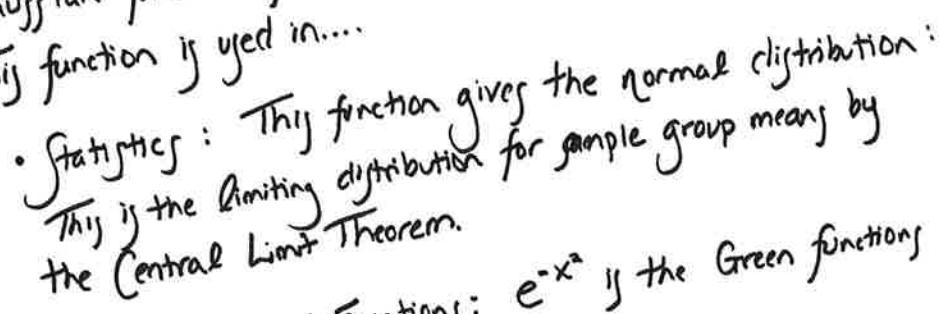 is function is used in....
• Statistics : This function gives the normal distribution :
This is the limiting distribution for sample group means by
the Central Limit Theorem.
: e^-x² is the Green functions